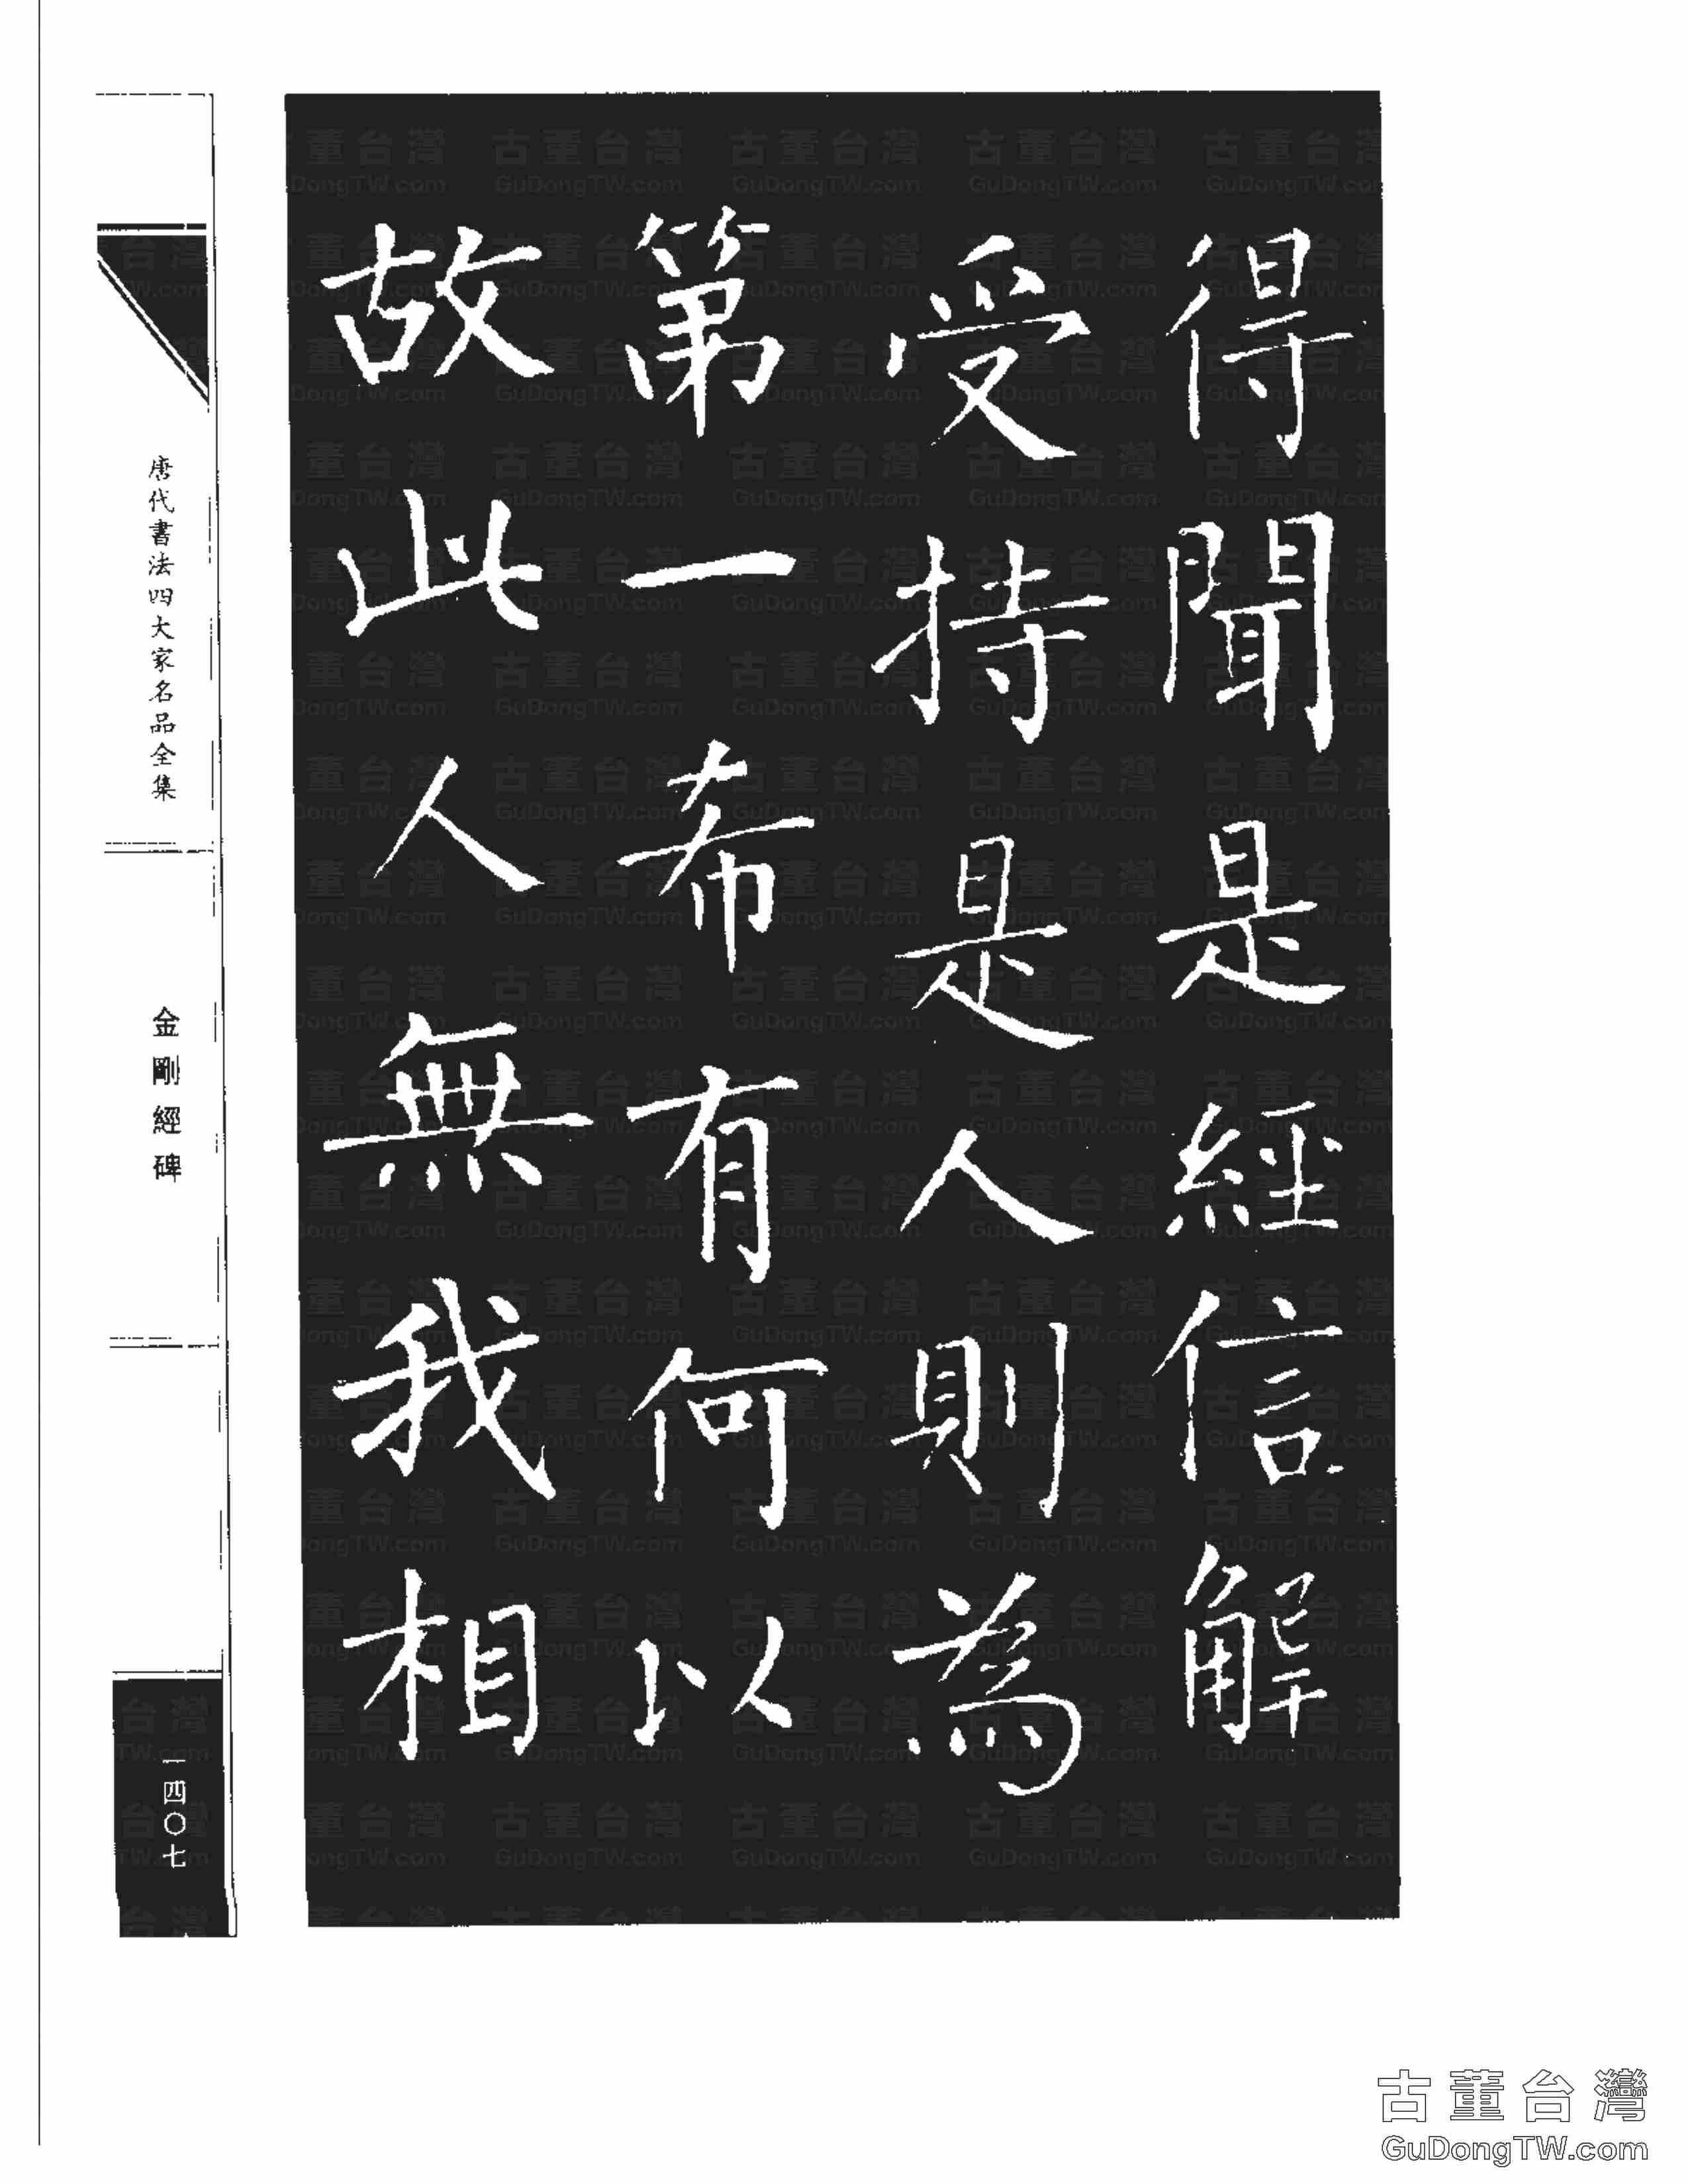 得聞是經信解
受持是人則為
第一希有何以
故此人無我相
唐代書法四大家名品全集
金剛經碑
一四〇七
古董台灣
GuDongTW.com